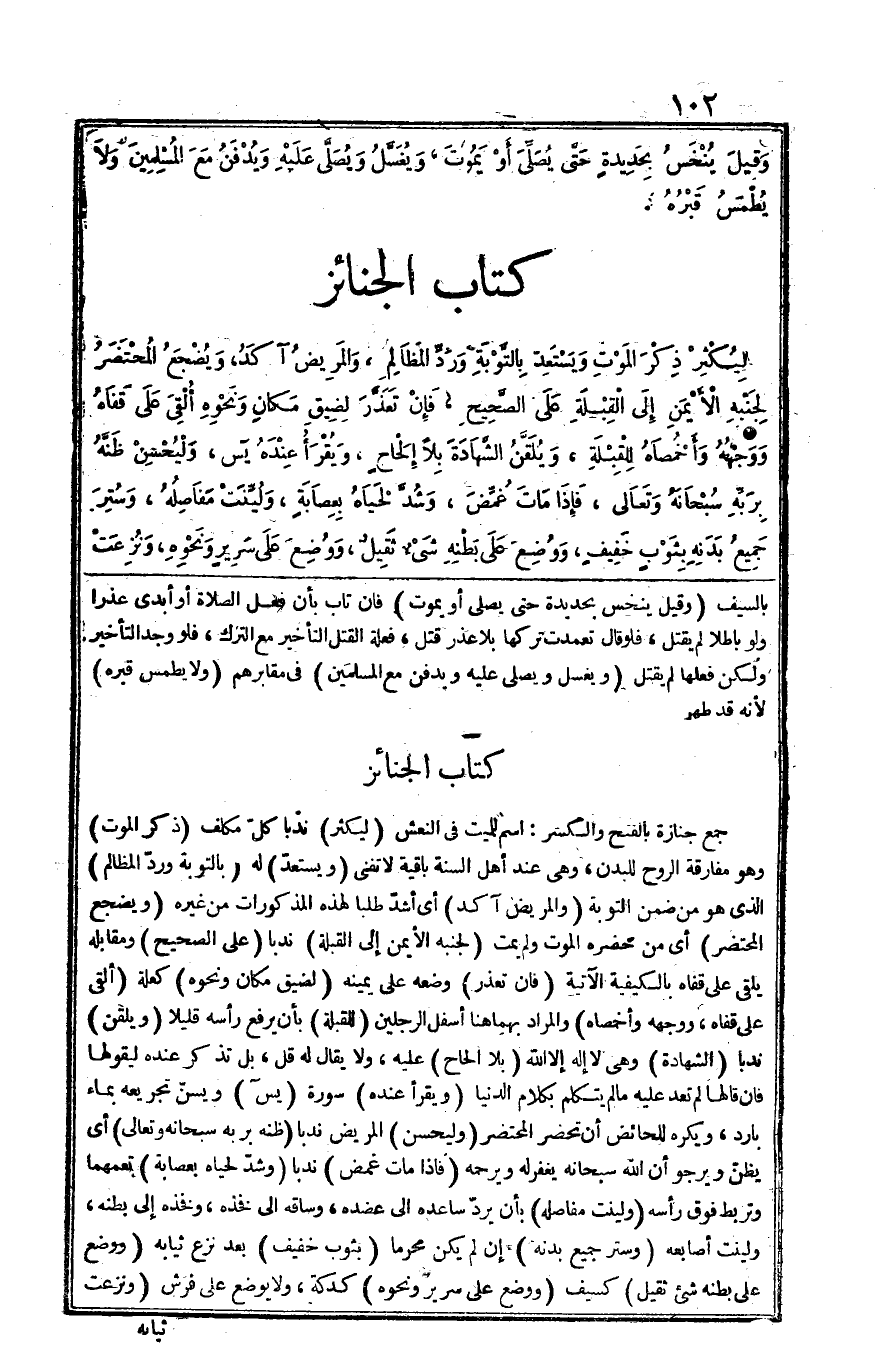 ١٠٢
وَقِيلَ يُنْخَسُ بِحَدِيدَةٍ حَتَّى يُصَلِّىَ أَوْ يَمُوتَ ، وَيُغَسَّلُ وَيُصَلَّى عَلَيْهِ وَيُدْفَنُ مَعَ الْمُسْلِمِينَ وَلاَ
يُطْمَسُ قَبْرُهُ .
كتاب الجنائز
لِيُكْثِرْ ذِكْرَ الْمَوْتِ وَيَسْتَعِدَّ بِالتَّوْبَةِ وَرَدِّ الْمَظَالِمِ ، وَالْمَرِيضُ آكَدُ، وَيُضْجَعُ الْمُحْتَضَرُ
لِجَنْبِهِ الْأَيْمَنِ إِلَى الْقِبْلَةِ عَلَى الصَّحِيحِ ، فَإِنْ تَعَذَّرَ لِضِيقِ مَكَانٍ وَنَحْوِهِ أُلْقِىَ عَلَى قَفَاهُ
وَوَجْهُهُ وَأَخْمُصَاهُ لِلْقِبْلَةِ ، وَيُلَقَّنُ الشَّهَادَةَ بِلاَ إِلْحَاحٍ ، وَيُقْرَأُ عِنْدَهُ يَس ، وَلْيُحْسِنْ ظَنَّهُ
بِرَبِّهِ سُبْحَانَهُ وَتَعَالَى ، فَإِذَا مَاتَ غُمِّضَ ، وَشُدَّ لَحْيَاهُ بِعِصَابَةٍ ، وَلُيِّنَتْ مَفَاصِلُهُ ، وَسُتِرَ
جَمِيعُ بَدَنِهِ بِثَوْبٍ خَفِيفٍ، وَوُضِعَ عَلَى بَطْنِهِ شَىْءٌ ثَقِيلٌ، وَوُضِعَ عَلَى سَرِيرٍ وَنَحْوِهِ، وَنُزِعَتْ
بالسيف (وقيل ينخس بحديدة حتى يصلى أو يموت) فان تاب بأن فعل الصلاة أو أبدى عذرا
ولو باطلا لم يقتل ، فلو قال تعمدت تركها بلا عذر قتل ، فعلة القتل التأخير مع الترك ، فلو وجد التأخير
ولكن فعلها لم يقتل (ويغسل ويصلى عليه ويدفن مع المسلمين) فى مقابرهم (ولا يطمس قبره)
لأنه قد طهر
كتاب الجنائز
جمع جنازة بالفتح والكسر : اسم للميت فى النعش (ليكثر) ندبا كلّ مكلف (ذكر الموت)
وهو مفارقة الروح للبدن ، وهى عند أهل السنة باقية لا تفنى (ويستعدّ) له (بالتوبة وردّ المظالم)
الذى هو من ضمن التوبة (والمريض آكد) أى أشدّ طلبا لهذه المذكورات من غيره (ويضجع
المحتضر) أى من حضره الموت ولم يمت (لجنبه الأيمن إلى القبلة) ندبا (على الصحيح) ومقابله
يلقى على قفاه بالكيفية الآتية (فان تعذر) وضعه على يمينه (لضيق مكان ونحوه) كعلة (ألقى
على قفاه ، ووجهه وأخمصاه) والمراد بهما هنا أسفل الرجلين (للقبلة) بأن يرفع رأسه قليلا (ويلقن)
ندبا (الشهادة) وهى لا إله إلا الله (بلا الحاح) عليه ، ولا يقال له قل ، بل تذكر عنده ليقولها
فان قالها لم تعد عليه مالم يتكلم بكلام الدنيا (ويقرأ عنده) سورة (يسٓ) ويسنّ تجريعه بماء
بارد ، ويكره للحائض أن تحضر المحتضر (وليحسن) المريض ندبا (ظنه بربه سبحانه وتعالى) أى
يظنّ ويرجو أن الله سبحانه يغفرله ويرحمه (فاذا مات غمض) ندبا (وشدّ لحياه بعصابة) تعمهما
وتربط فوق رأسه (ولينت مفاصله) بأن يردّ ساعده الى عضده ، وساقه الى فخذه ، وفخذه إلى بطنه ،
ولينت أصابعه (وستر جميع بدنه) إن لم يكن محرما (بثوب خفيف) بعد نزع ثيابه (ووضع
على بطنه شئ ثقيل) كسيف (ووضع على سرير ونحوه) كدكة ، ولا يوضع على فرش (ونزعت
ثيابه